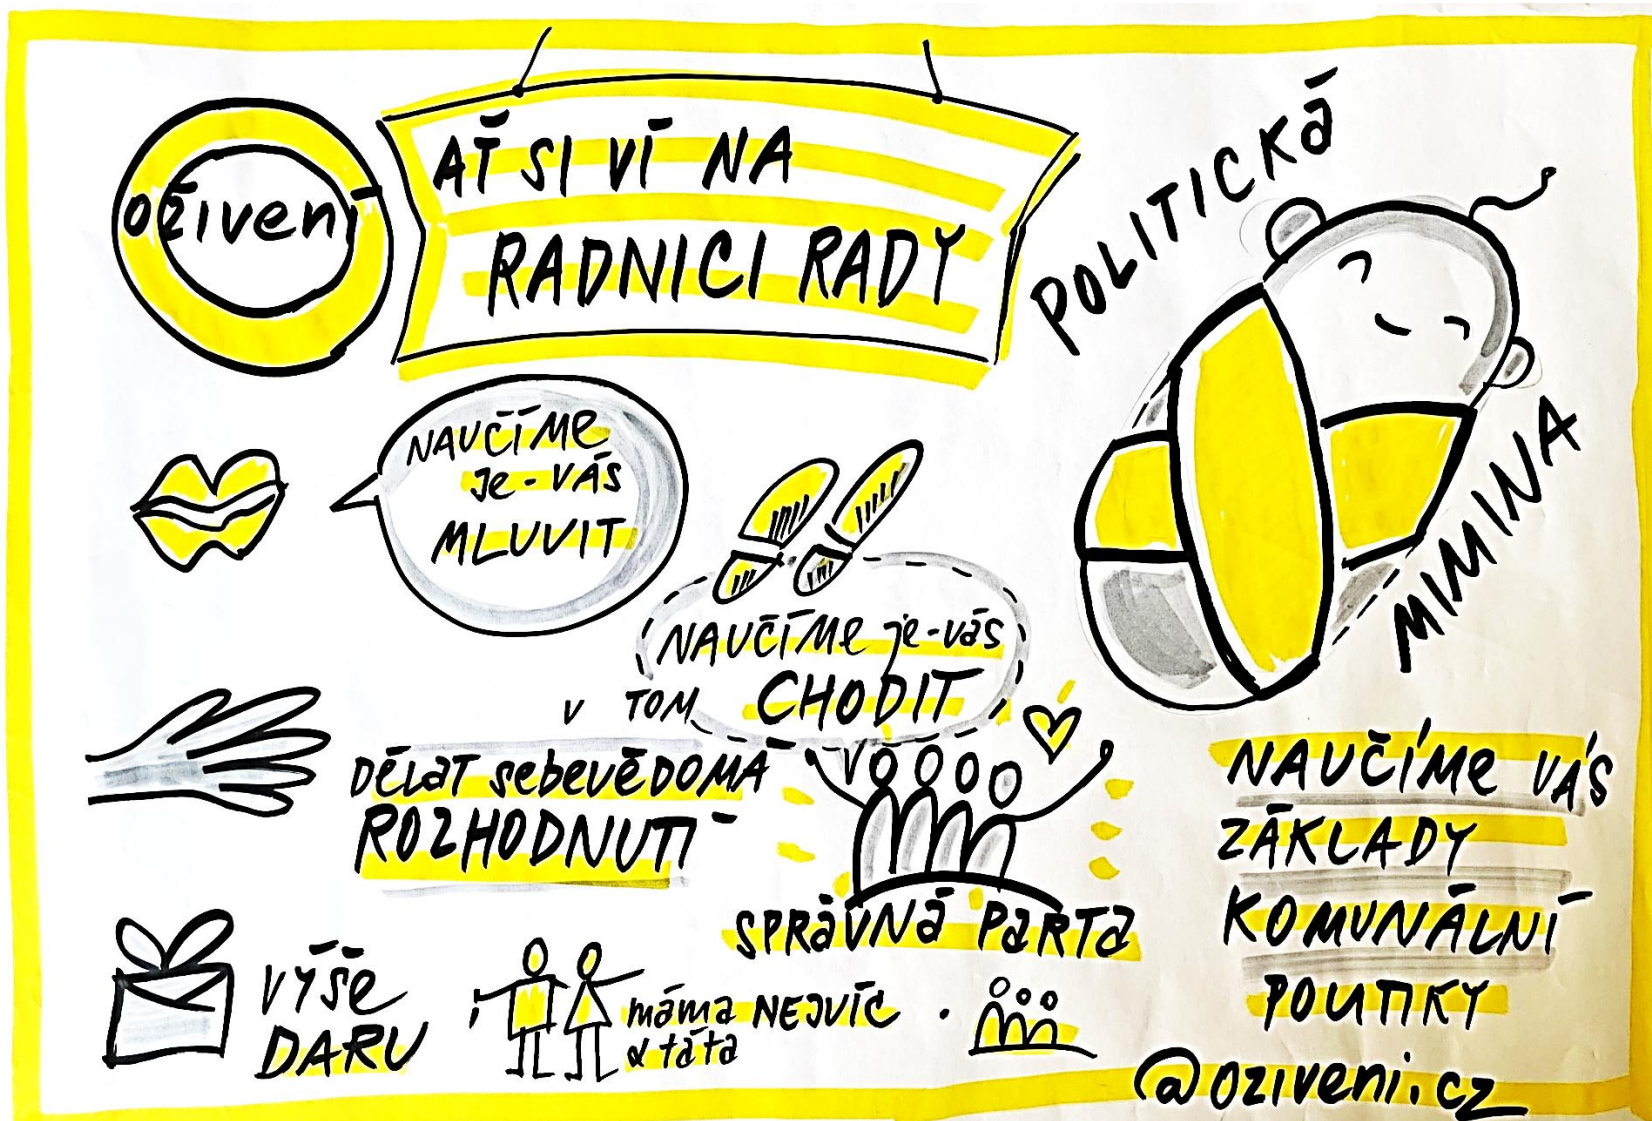 oživení
AŤ SI VÍ NA
RADNICI RADY
POLITICKÁ
MIMINA
NAUČÍME
je-VÁS
MLUVIT
NAUČÍME je-vás
v TOM CHODIT
DĚLAT sebevĚDOMÁ
ROZHODNUTÍ
SPRÁVNÁ PARTA
NAUČÍME VÁS
ZÁKLADY
KOMUNÁLNÍ
POLITIKY
VÝŠE
DARU
máma NEJVÍC
& táta
@oziveni.cz